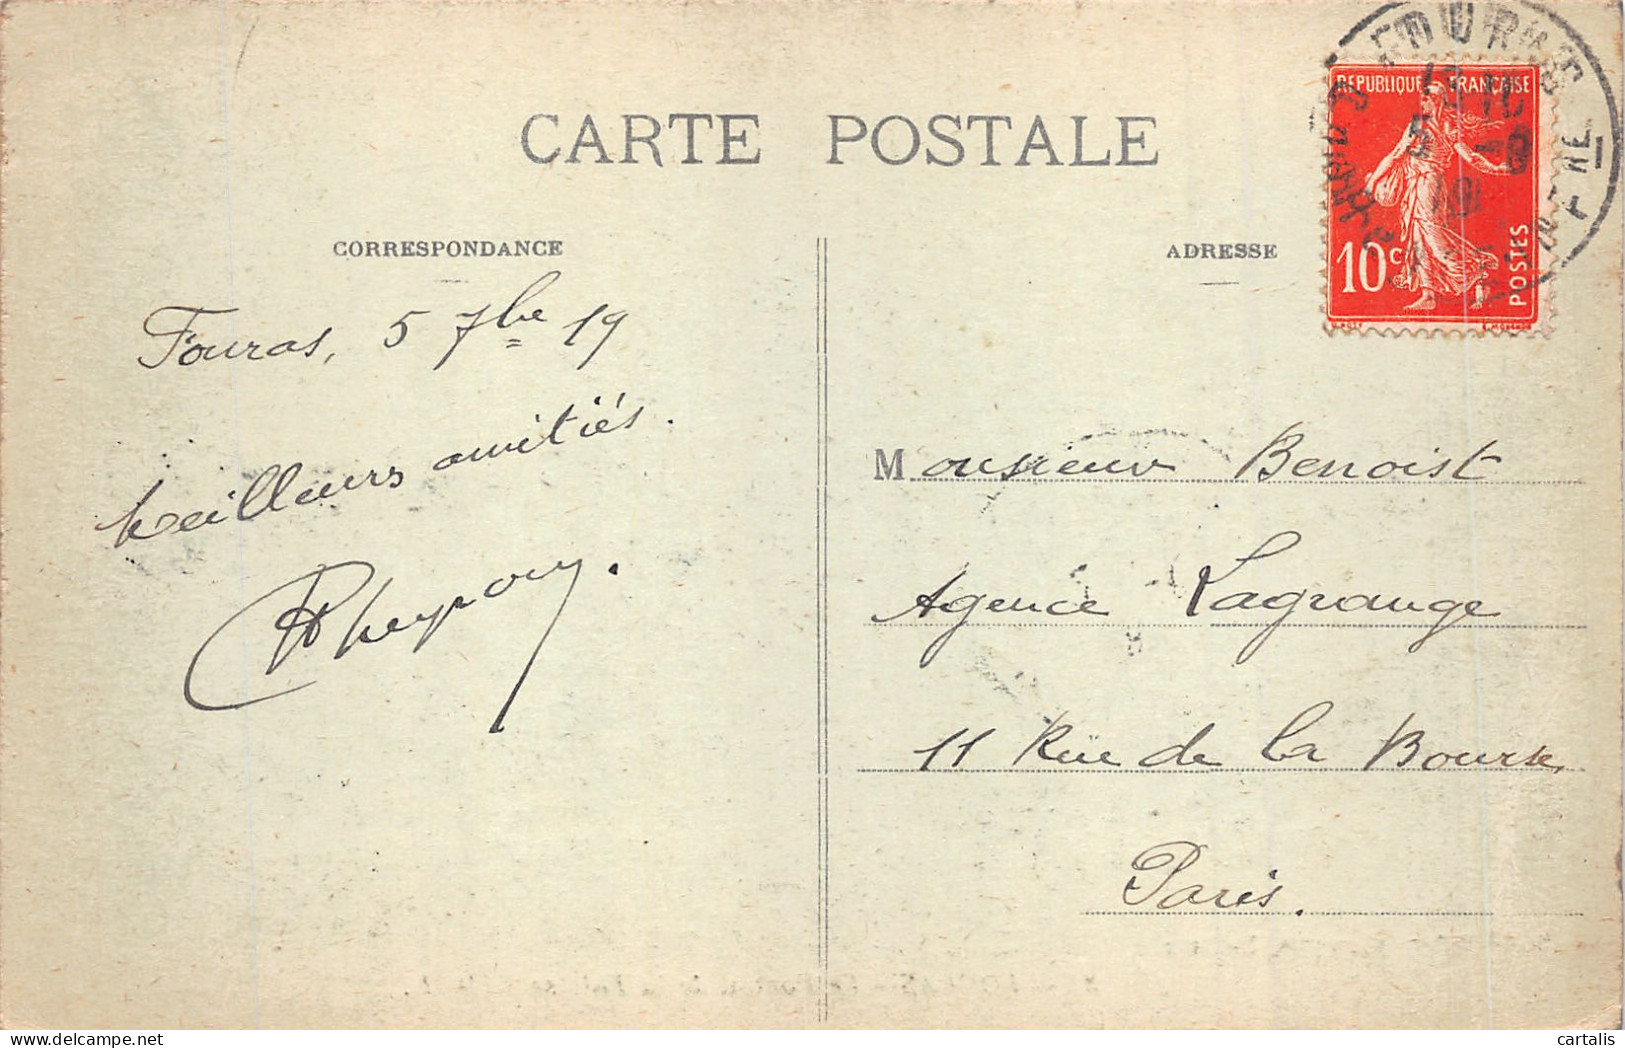 CARTE POSTALE
CORRESPONDANCE
Fouras, 5 7bre 19
Meilleurs amitiés.
ADRESSE
REPUBLIQUE FRANÇAISE
10 c
POSTES
Monsieur Benoist
Agence Lagrange
11 Rue de la Bourse
Paris.
cartalis